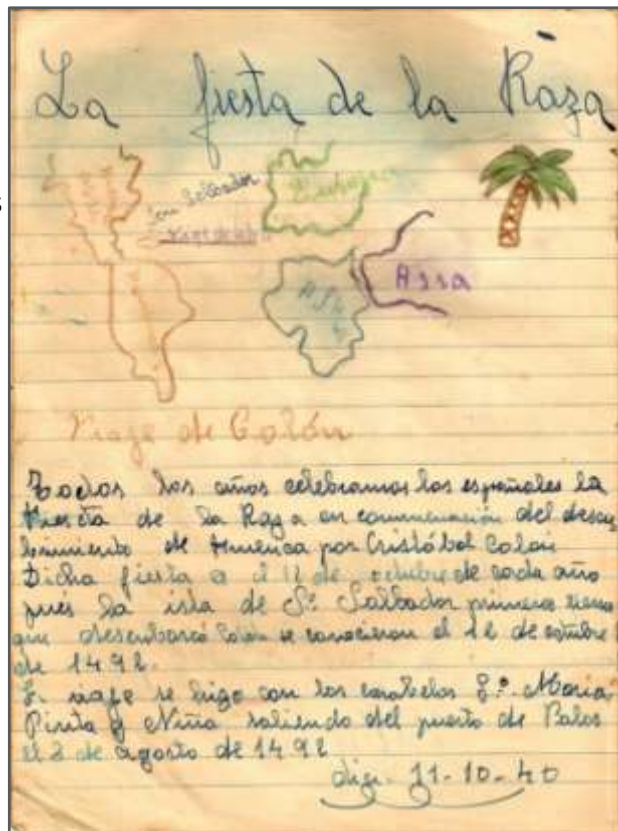 La fiesta de la Raza
San Salbador
Europa
Africa
Assa
Viaje de Colón
Todos los años celebramos los españoles la
Fiesta de la Raza en conmemoración del descu
brimiento de America por Cristóbal Colón
Dicha fiesta es el 12 de octubre de cada año
pues la isla de Sn Salbador primera tierra
que desenbarcó Colón se conocieron el 12 de octubre
de 1492.
viaje se hizo con las carabelas Sta Maria
Pinta y Niña saliendo del puerto de Palos
el 3 de agosto de 1492
dia - 11-10-40
s